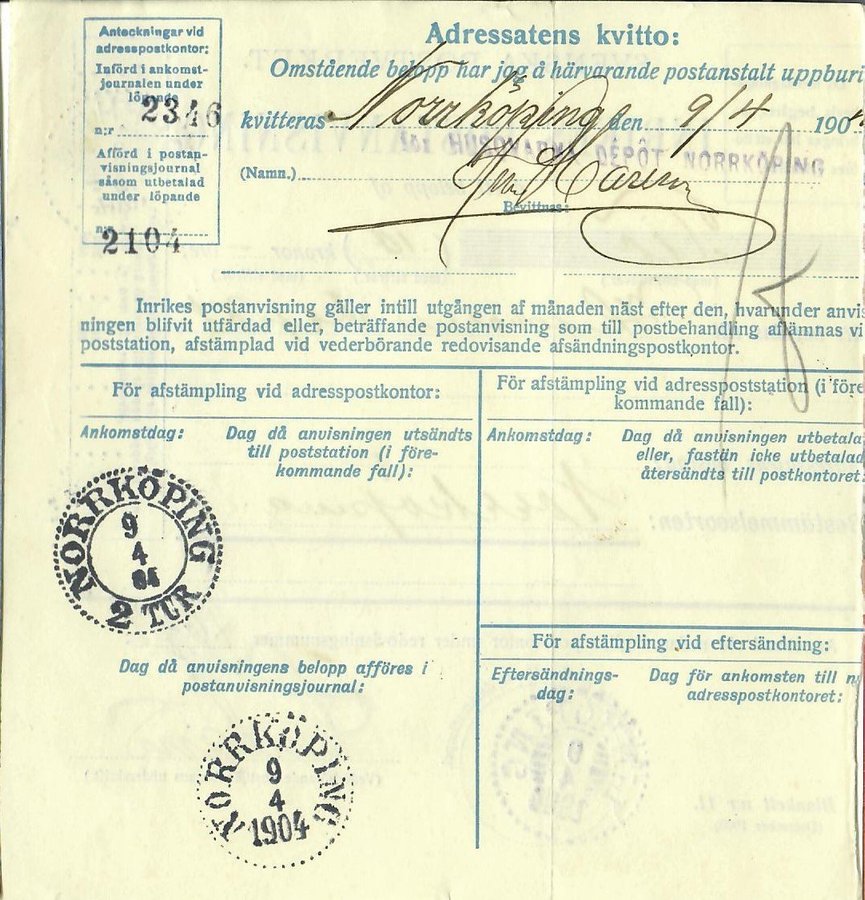 Anteckningar vid
adresspostkontor:
Införd i ankomst-
journalen under
löpande
n:r 2346
Afförd i postan-
visningsjournal
såsom utbetalad
under löpande
n:r 2104
Adressatens kvitto:
Omstående belopp har jag å härvarande postanstalt uppburi
kvitteras Norrköping den 9/4 190
för HUSQVARNA DEPÔT NORRKÖPING
(Namn.)
Bevittnas:
Inrikes postanvisning gäller intill utgången af månaden näst efter den, hvarunder anvis
ningen blifvit utfärdad eller, beträffande postanvisning som till postbehandling aflämnas vi
poststation, afstämplad vid vederbörande redovisande afsändningspostkontor.
För afstämpling vid adresspostkontor:
Ankomstdag:
Dag då anvisningen utsändts
till poststation (i före-
kommande fall):
NORRKÖPING
9
4
04
2 TUR
Dag då anvisningens belopp affores i
postanvisningsjournal:
NORRKÖPING
9
4
1904
För afstämpling vid adresspoststation (i före
kommande fall):
Ankomstdag:
Dag då anvisningen utbetala
eller, fastän icke utbetalad
återsändts till postkontoret:
För afstämpling vid eftersändning:
Eftersändnings-
dag:
Dag för ankomsten till n
adresspostkontoret: